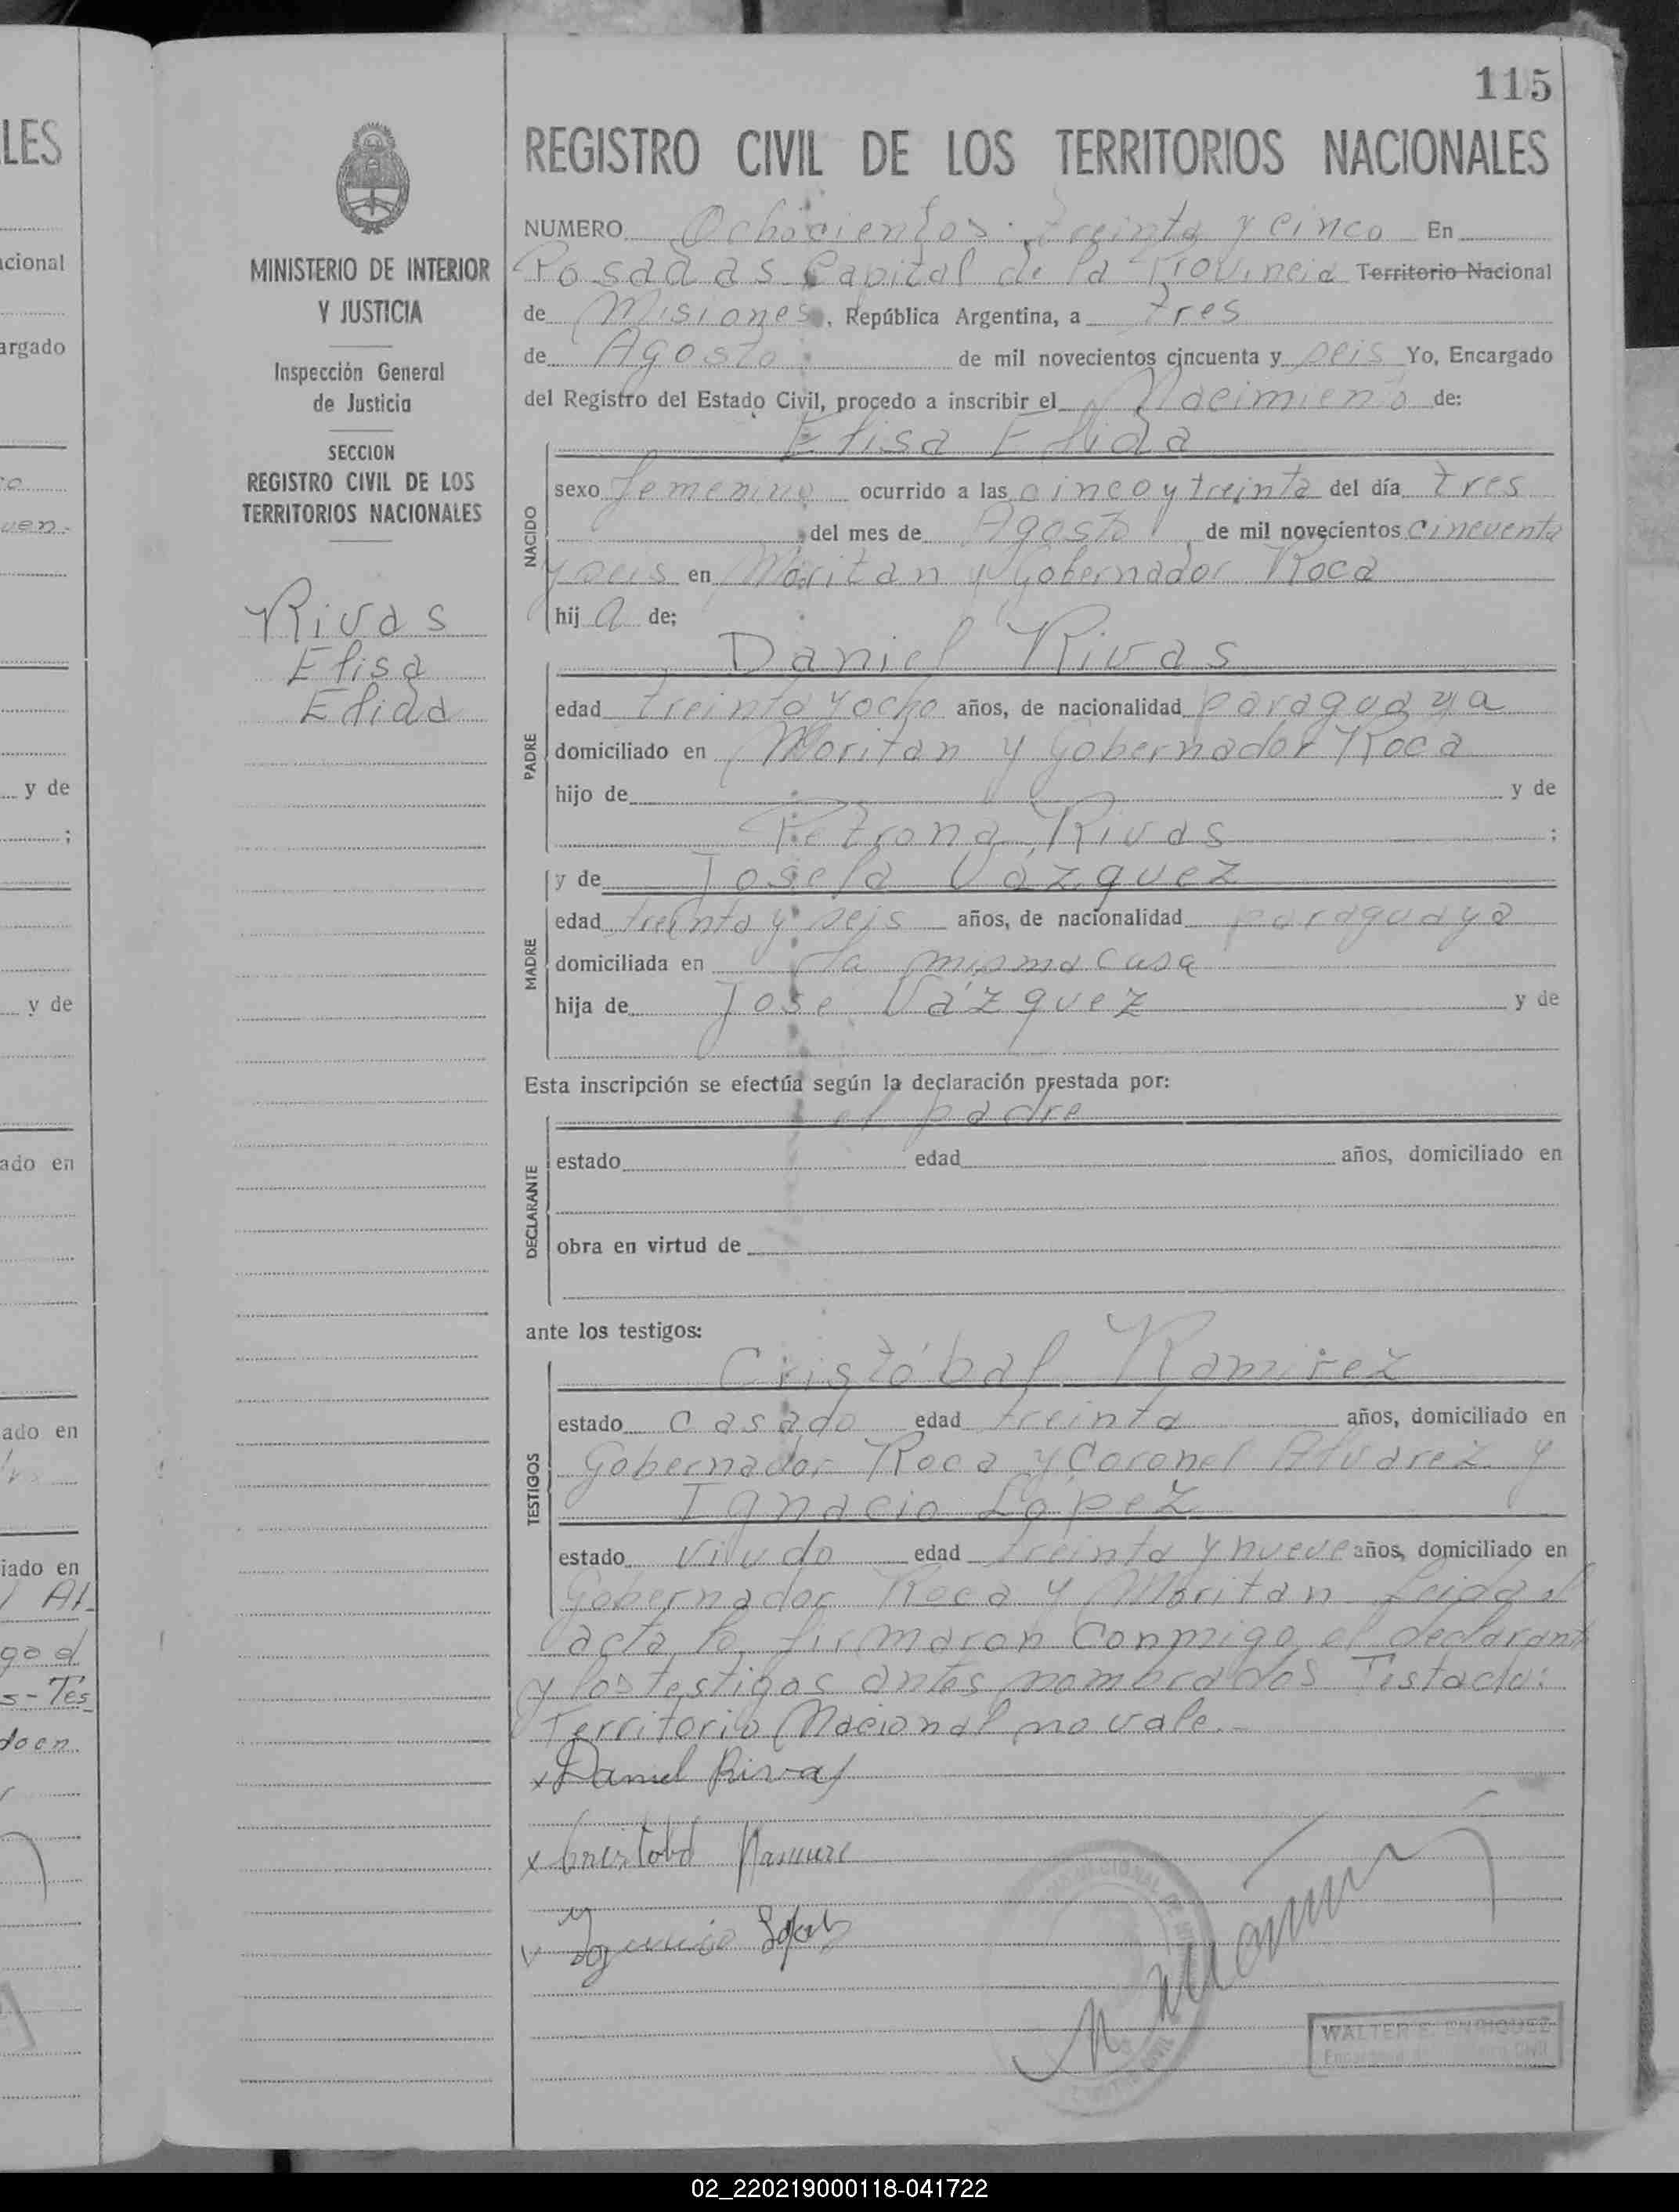 115
REGISTRO CIVIL DE LOS TERRITORIOS NACIONALES
MINISTERIO DE INTERIOR
Y JUSTICIA
Inspección General
de Justicia
SECCION
REGISTRO CIVIL DE LOS
TERRITORIOS NACIONALES
Rivas
Elisa
Elida
NUMERO Ochocientos treinta y cinco En
Posadas Capital de la Provincia Territorio Nacional
de Misiones, República Argentina, a tres
de Agosto de mil novecientos cincuenta y seis Yo, Encargado
del Registro del Estado Civil, procedo a inscribir el Nacimiento de:
Elisa Elida
NACIDO
sexo femenino ocurrido a las cinco y treinta del día tres
del mes de Agosto de mil novecientos cincuenta
y seis en Moritan y Gobernador Roca
hija de;
Daniel Rivas
PADRE
edad treinta y ocho años, de nacionalidad paraguaya
domiciliado en Moritan y Gobernador Roca
hijo de y de
Petrona Rivas ;
y de Josefa Vázquez
MADRE
edad treinta y seis años, de nacionalidad paraguaya
domiciliada en la misma casa
hija de José Vázquez y de
Esta inscripción se efectúa según la declaración prestada por:
el padre
DECLARANTE
estado edad años, domiciliado en
obra en virtud de
ante los testigos:
Cristóbal Ramirez
TESTIGOS
estado casado edad treinta años, domiciliado en
Gobernador Roca y Coronel Alvarez y
Ignacio López
estado viudo edad treinta y nueve años, domiciliado en
Gobernador Roca y Moritan leida el
acta la firmaron conmigo el declarant
y los testigos antes nombrados Testado:
Territorio Nacional no vale.-
x Daniel Rivas
x Cristobal
Ignacio Lopez
WALTER E. ENRIQUEZ
Encargado Registro Civil
LES
cional
argado
y de
;
y de
ado en
ado en
iado en
Al
02_220219000118-041722